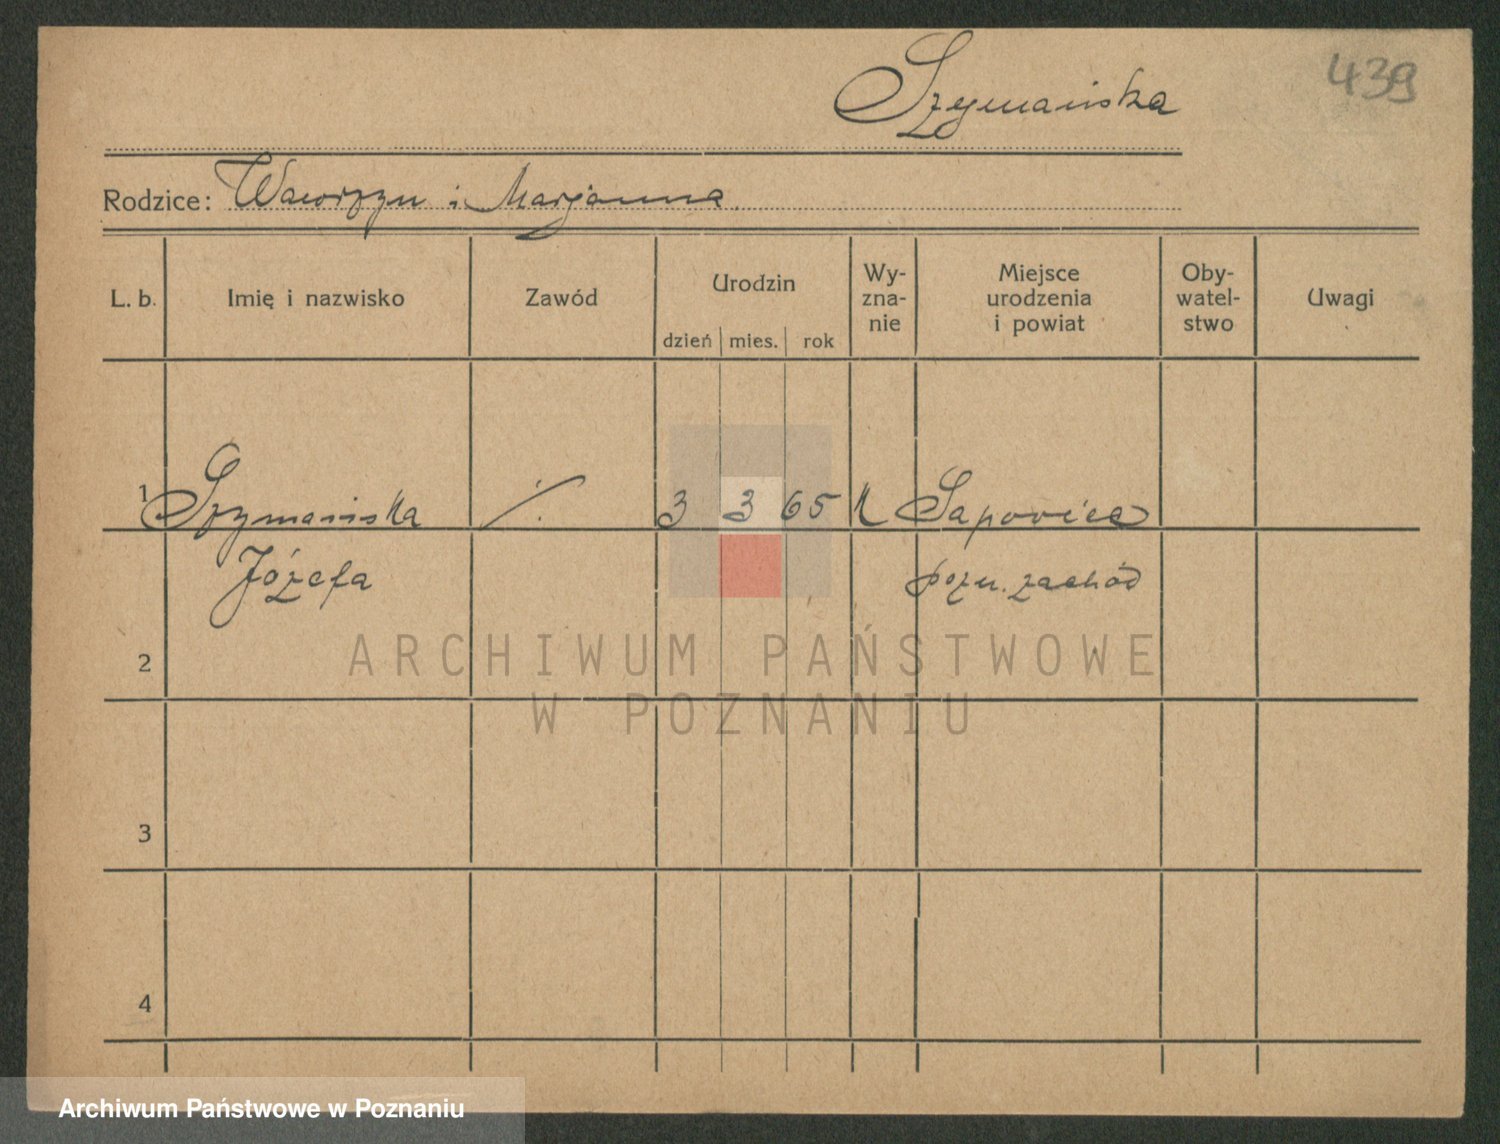 Szymańska
439
Rodzice: Wawrzyn i Marjanna
L. b. Imię i nazwisko Zawód Urodzin dzień mies. rok Wy-zna-nie Miejsce urodzenia i powiat Oby-watel-stwo Uwagi
1 Szymańska ./. 3 3 65 k Sapowice
Józefa pozn. zachód
2
3
4
ARCHIWUM PAŃSTWOWE
W POZNANIU
Archiwum Państwowe w Poznaniu